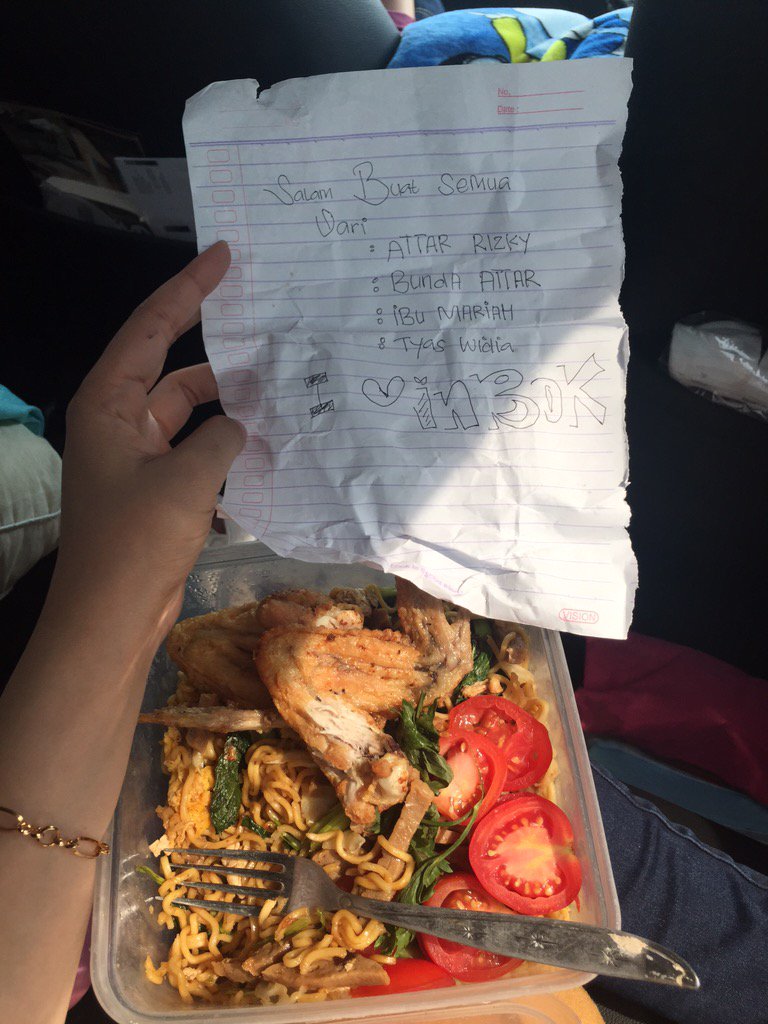 No.
Date :
Salam Buat Semua
Dari
: ATTAR RIZKY
: BUNDA ATTAR
: iBU MARIAH
: Tyas Widia
I ♡ inBOK
VISION